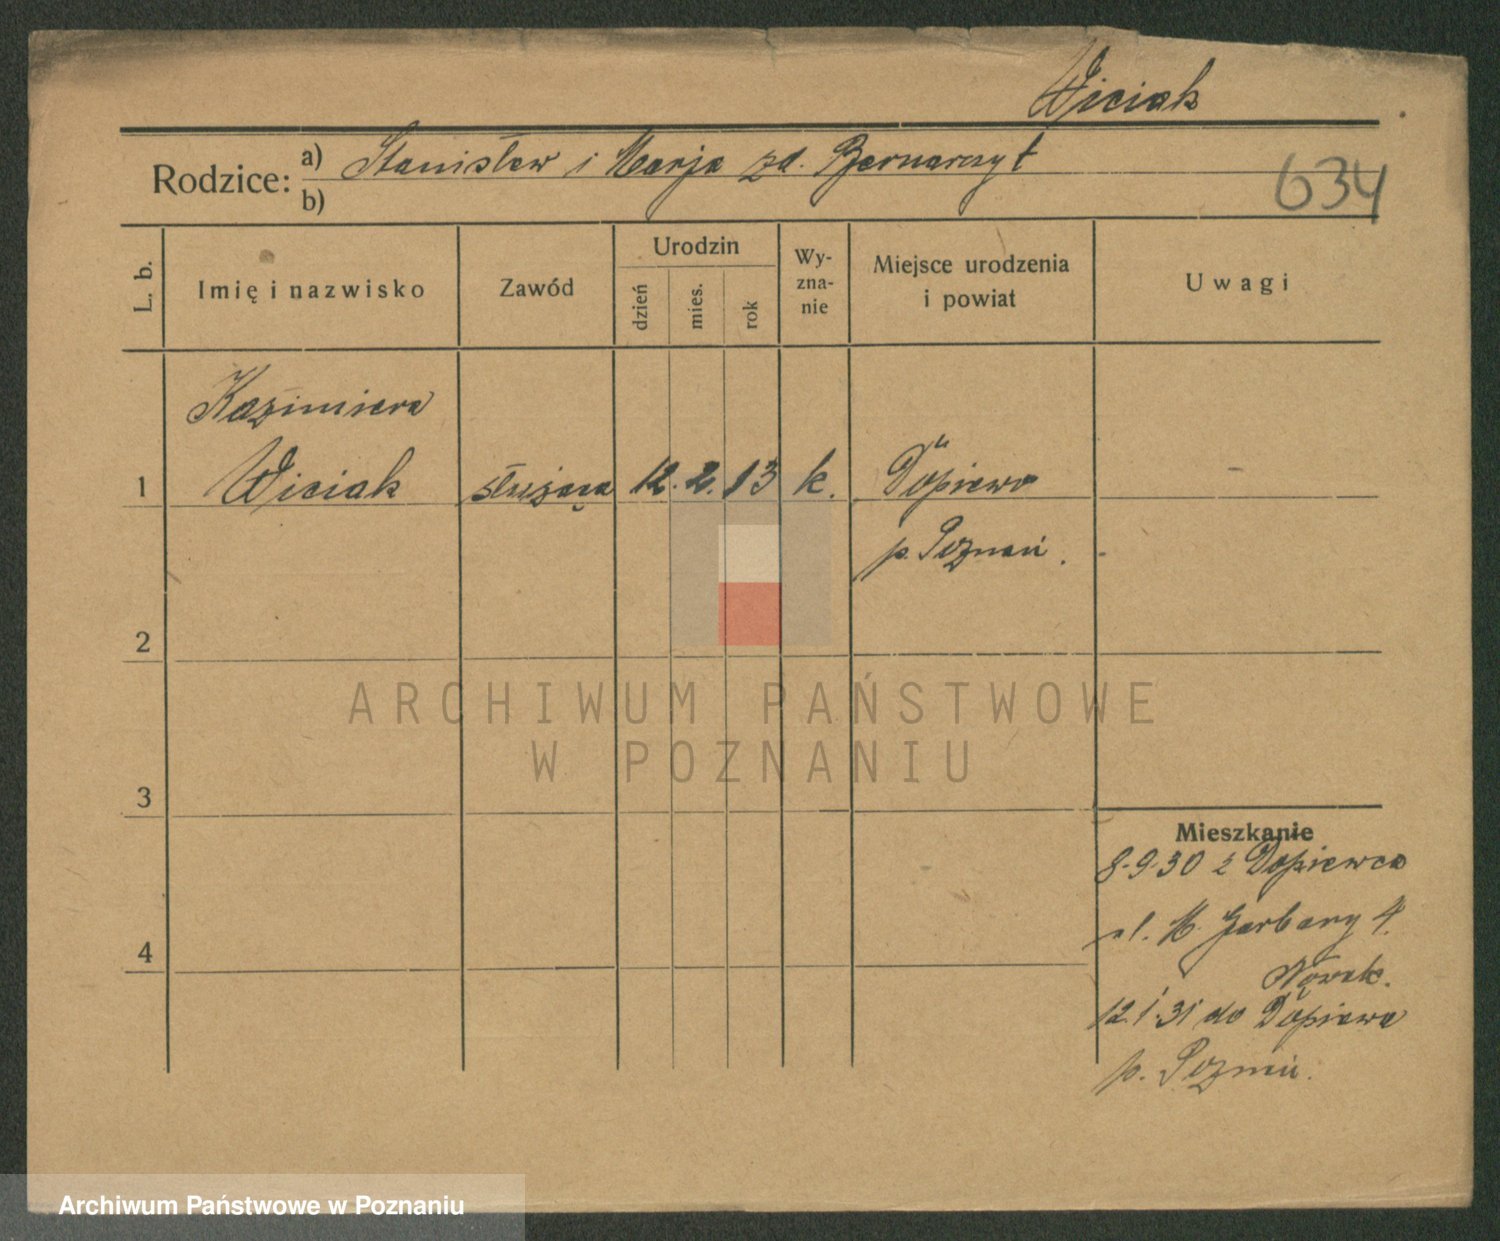 Wiciak
Rodzice: a) Stanisław i Marja zd. Bernarczyt
b)
634
L. b.
Imię i nazwisko
Zawód
Urodzin
dzień
mies.
rok
Wy-
zna-
nie
Miejsce urodzenia
i powiat
Uwagi
Kazimiera
1 Wiciak służąca 12. 2. 13 k. Dopiewo
p. Poznań.
2
ARCHIWUM PAŃSTWOWE
W POZNANIU
3
Mieszkanie
8.9.30 z Dopiewca
ul. M. Garbary 4.
4
Nowak.
12.1.31 do Dopiewa
p. Poznań.
Archiwum Państwowe w Poznaniu